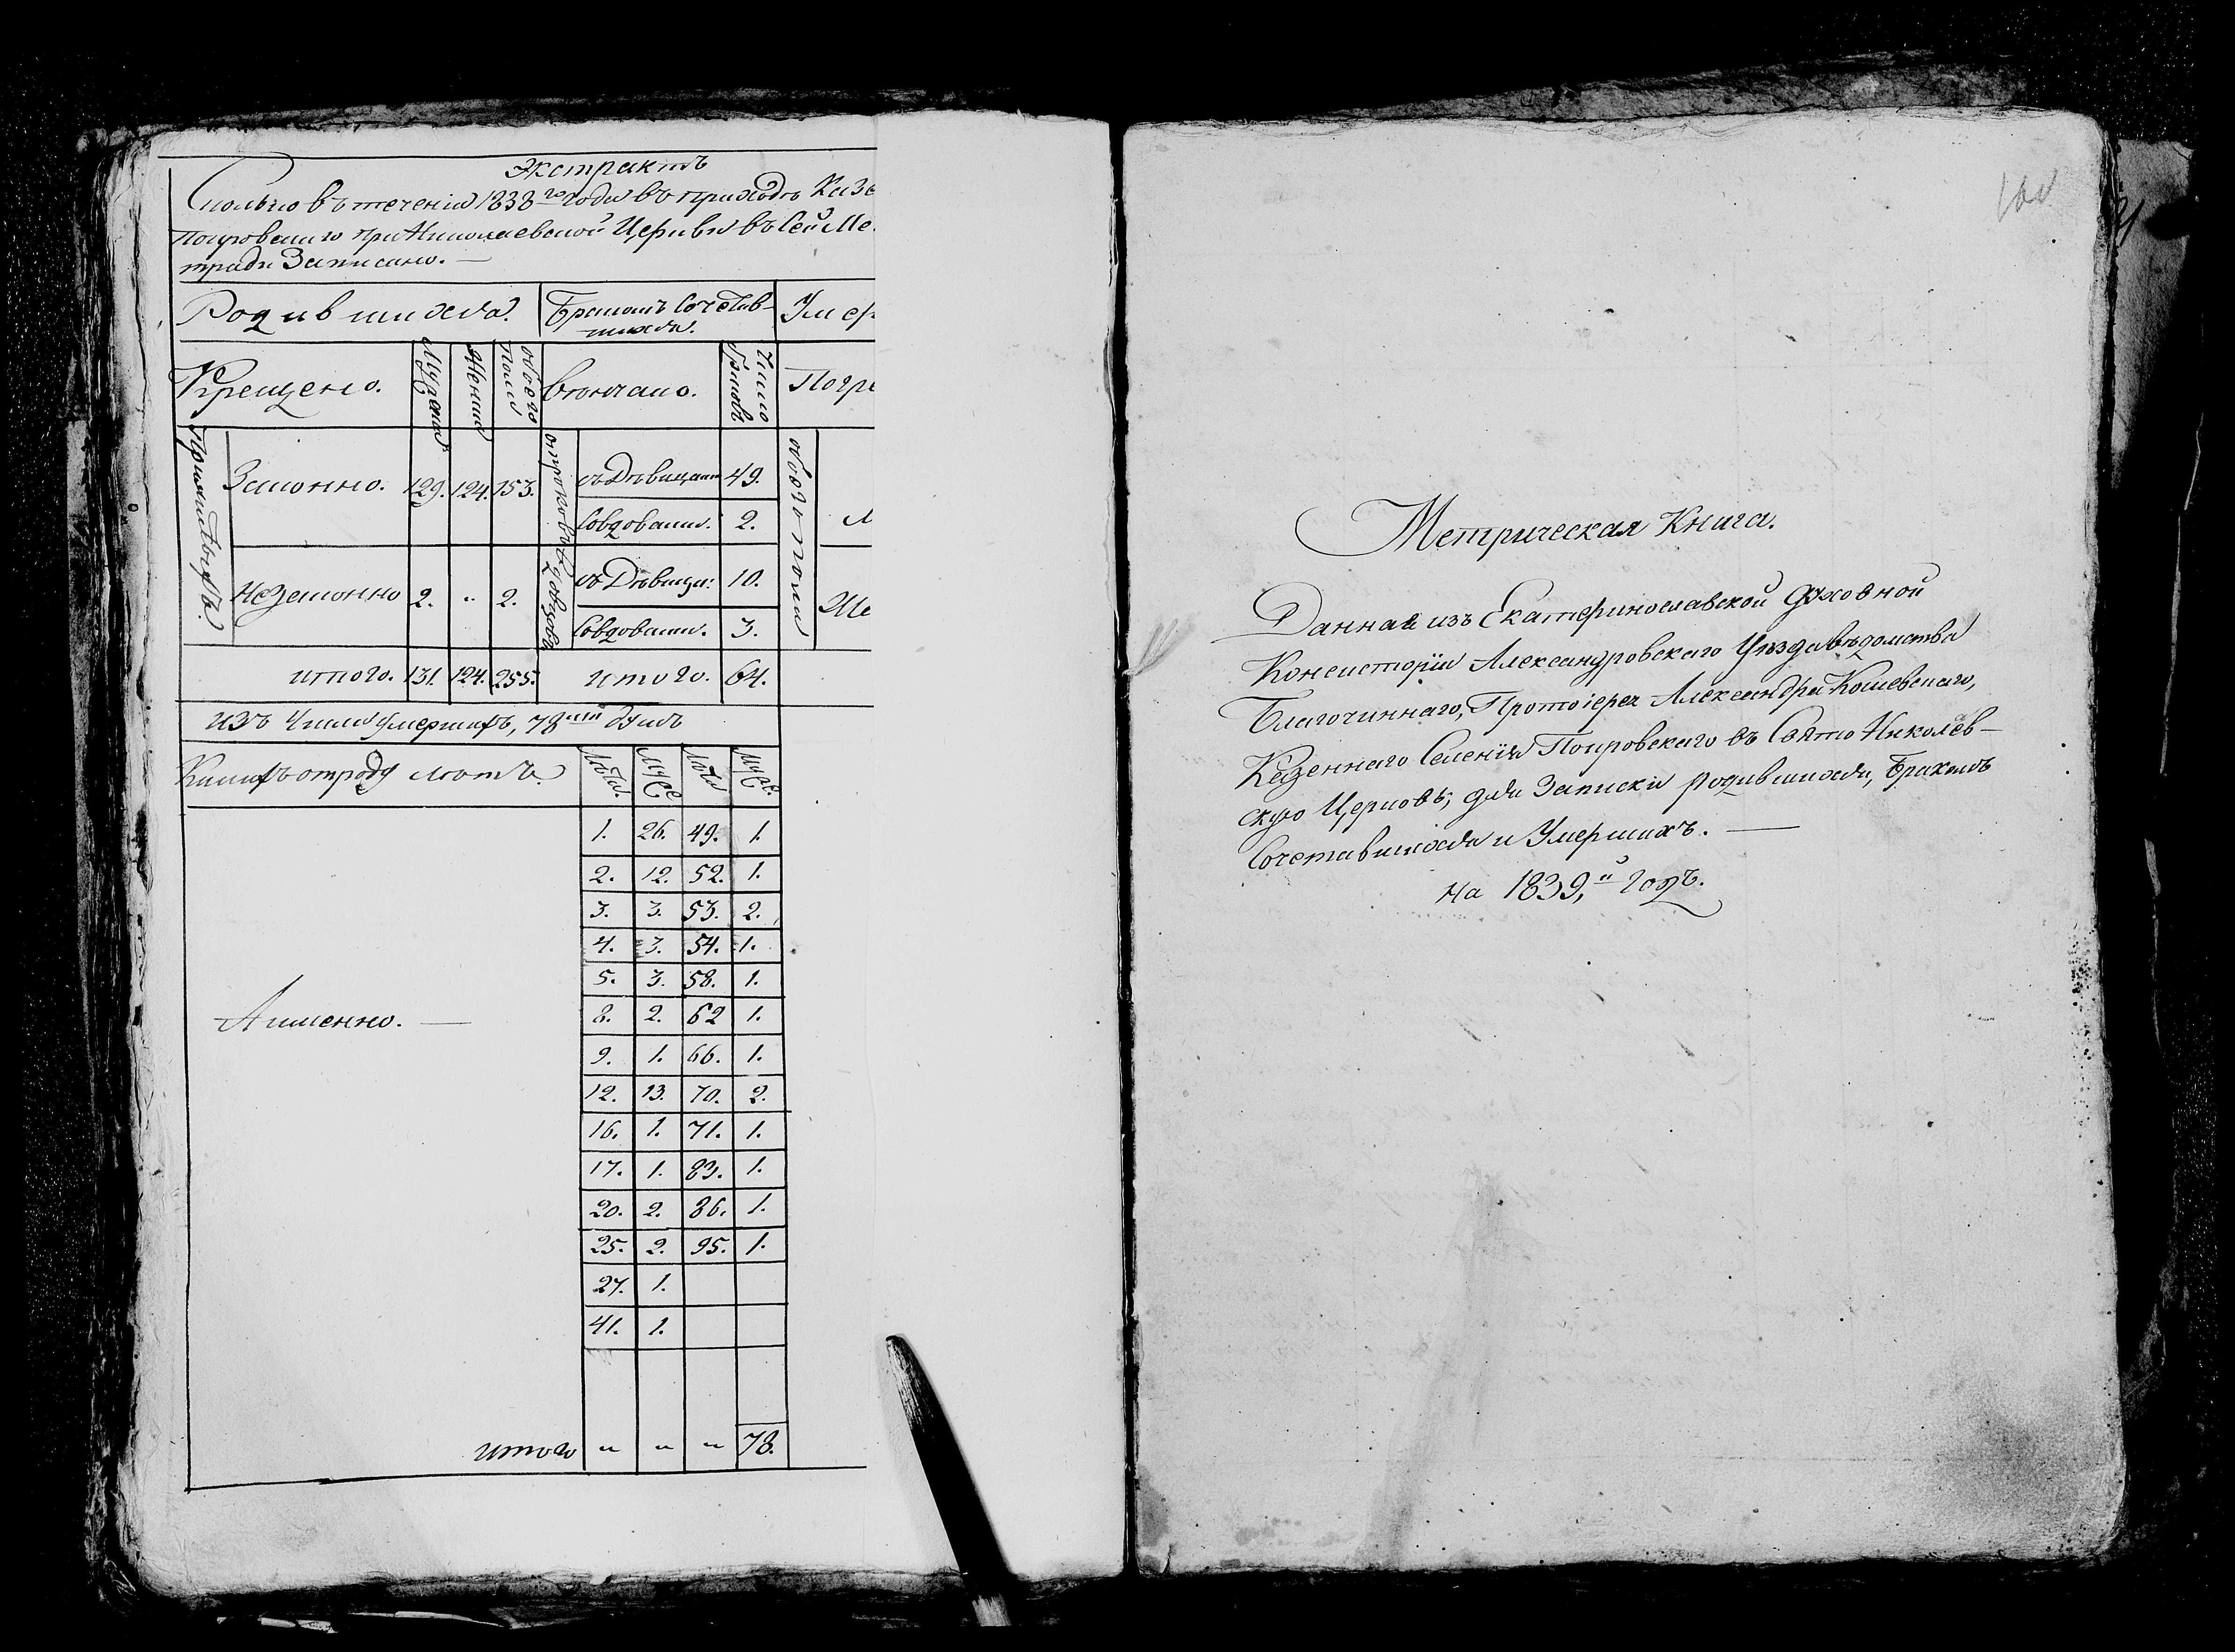 Экстрактъ
Сколько въ теченіи 1838го года въ приходѣ Казе
Покровскаго при Николаевской Церкви въ сей Ме
тради Записано. —
Родившихся. Бракомъ Сочетав- Умер
шихся.
Крещено. Мужска Женска обоего пола вѣнчано. Число браковъ Погре
Законно. 129. 124. 153. отроковъ съ Дѣвицами 49. обоего пола
Совдовами. 2. М
Незаконно 2. „ 2. вдовцовъ съ Дѣвица: 10. Же
Совдовами. 3.
итого. 131. 124. 255. итого. 64.
изъ Числа умершихъ, 78ми душъ
Какихъ отроду лѣтъ. Лѣта. Муж Лѣта Муж.
1. 26. 49. 1.
2. 12. 52. 1.
3. 3. 53. 2.
4. 3. 54. 1.
5. 3. 58. 1.
Аименно. — 8. 2. 62 1.
9. 1. 66. 1.
12. 13. 70. 2.
16. 1. 71. 1.
17. 1. 83. 1.
20. 2. 86. 1.
25. 2. 95. 1.
27. 1.
41. 1.
итого „ „ „ 78.
Метрическая Книга.
Данная изъ Екатеринославской духовной
Консисторіи Александровскаго Уѣзда вѣдомства
Благочиннаго, Протоіерея Александра Кошевскаго,
Казеннаго Селенія Покровскаго въ Свято Николаев-
скую Церковь, для Записки родившихся, Бракомъ
Сочетавшихся и Умершихъ. —
на 1839,й годъ.